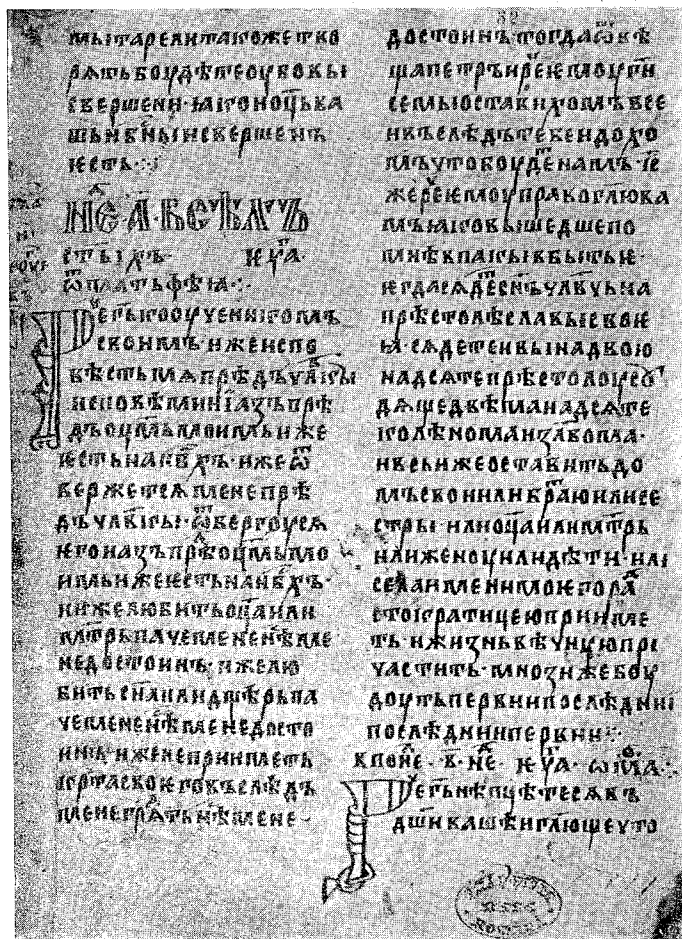 мытарелитакожетво
рѧтьбоудѣтеоубовы
свершени·ꙗкоиоц҃ьва
шьнб҃ныисвершенъ
ѥсть·
нед҃·а҃·всѣмъ
ст҃ыхъ· ѥуⷢ҇а·
ѿматьфеꙗ·
Речегь҃ісвоимъоученикомъ
своимъ·ижеиспо
вѣстьмѧпрѣдъчл҃вкы
исповѣмииꙗзъпрѣ
дъоц҃мьмоимьиже
ѥстьнанб҃схъ·ижеѿ
вержетсѧменепрѣ
дъчл҃вкы·ѿвергоусѧ
ѥгоиазъпрⷣѣоц҃мьмо
имьижеѥстьнанб҃схъ·
ижелюбитьоц҃аили
мт҃рьпачеменен҃ѣме
недостоинъ·ижелю
битьсн҃аилидщерьпа
чемененѣменедосто
инъ·иженеприиметь
крⷭ҇тасвоѥговъслѣдъ
менегрⷧѧтьнѣмене
достоинътогдаѿвѣ
щапетръиреⷱ҇ѥмоуг҃и
семыоставихомъвсе
ивъслѣдътебеидохо
мъчтобоудеⷮнамъ·іс҃
жереⷱ҇ѥмоуправоглюва
мъꙗковышедшепо
мнѣвпакывбытьѥ·
ѥгдасѧдетьсн҃ъчл҃вчьна
прѣстолѣславысвоѥ
ꙗ·сѧдетеивынадвою
надесѧтепрѣстолоусоу
дѧщедвѣманадесѧте
колѣноманзл҃вома·
ивсьижеоставитьдо
мъсвоиилибратьюилисе
стрыилиоц҃аилимт҃рь
илиженоуилидѣти·или
селаименимоѥгораⷣ
стократицеюприиме
тьижизньвѣчнуюпри
частить·мнозижебоу
доутьпервиипослѣднии
послѣдниипервии·
впонеⷣ·в҃·неⷣ·ѥуⷢ҇а·ѿмⷴа·
Речегь҃непьцѣтесѧвъ
дшивашѣиглющечто